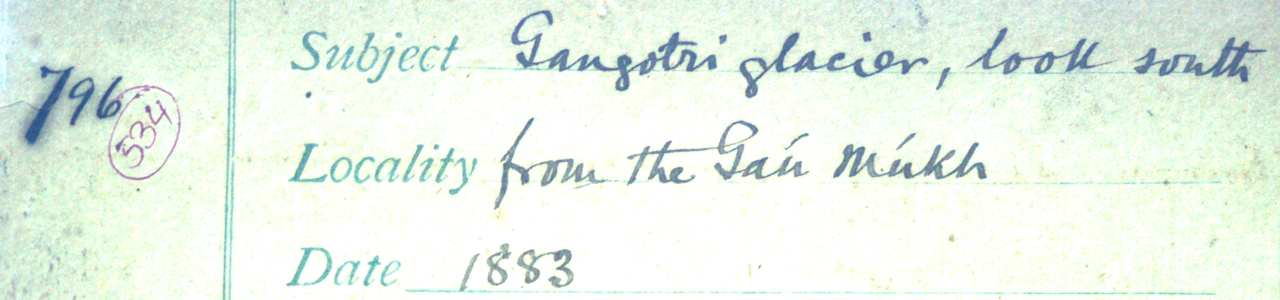 Subject Gangotri glacier, look south
796
534
Locality from the Gaú Múkh
Date 1883